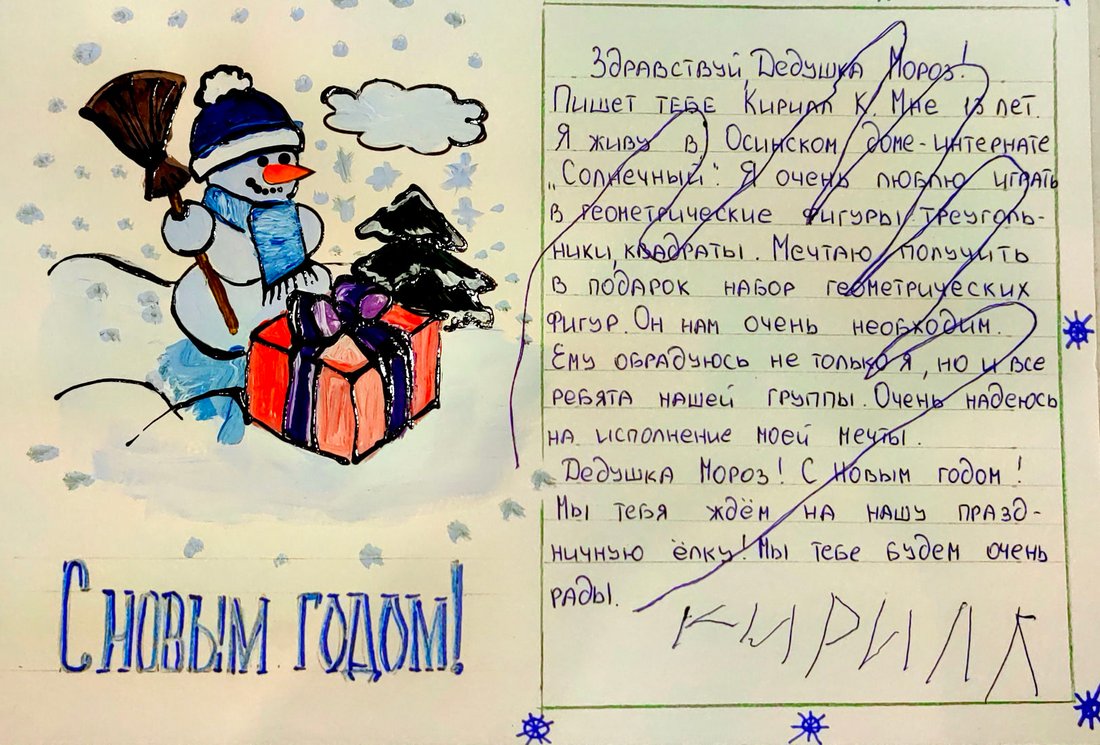 Здравствуй, Дедушка Мороз!
Пишет тебе Кирилл К. Мне 13 лет.
Я живу в Осинском доме-интернате
„Солнечный“. Я очень люблю играть
в геометрические фигуры: треуголь-
ники, квадраты. Мечтаю получить
в подарок набор геометрических
фигур. Он нам очень необходим.
Ему обрадуюсь не только я, но и все
ребята нашей группы. Очень надеюсь
на исполнение моей мечты.
Дедушка Мороз! С Новым годом!
Мы тебя ждём на нашу празд-
ничную ёлку! Мы тебе будем очень
рады.
КИРИЛЛ
С НОВЫМ ГОДОМ!